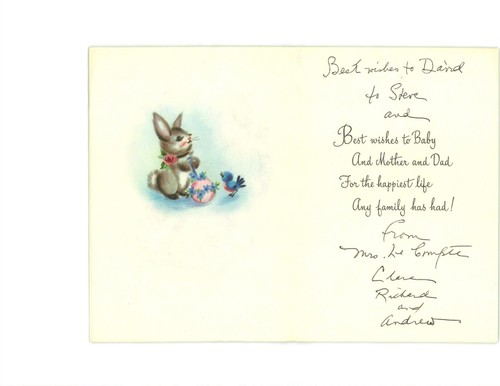 Best wishes to David
to Steve
and
Best wishes to Baby
And Mother and Dad
For the happiest life
Any family has had!
From
Mrs. Le Compte
Clara
Richard
and
Andrew